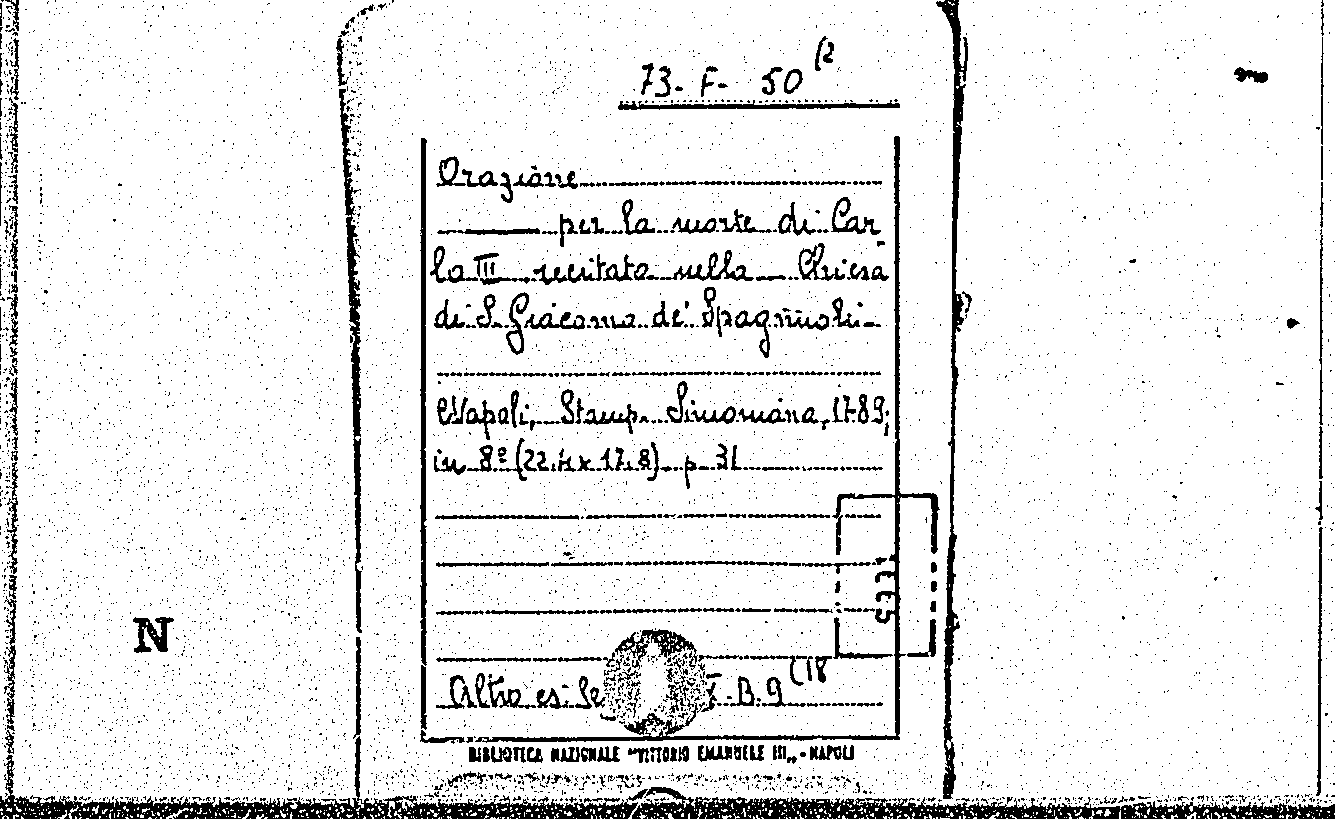 73-F-50 (2
Orazione
——— per la morte di Car-
lo III recitata nella Chiesa
di S. Giacomo de' Spagnuoli-
Napoli, Stamp. Simoniana, 1789;
in 8º (22.4 x 17.8) p. 31
5771
N
Altro es: Se B.9 (18
BIBLIOTECA NAZIONALE "VITTORIO EMANUELE III" - NAPOLI